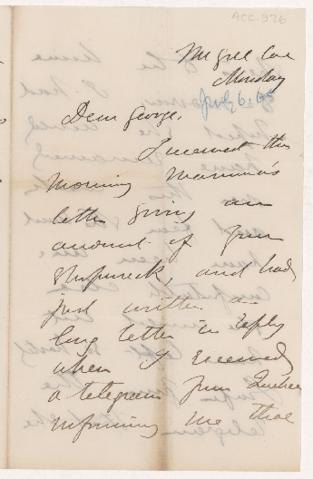 ACC. 926
McGill Col
Monday
July 6. 65
Dear George,
I received this
morning Mamma's
letter giving an
account of your
shipwreck, and had
just written a
long letter in reply
when I received
a telegram from Quebec
informing me that